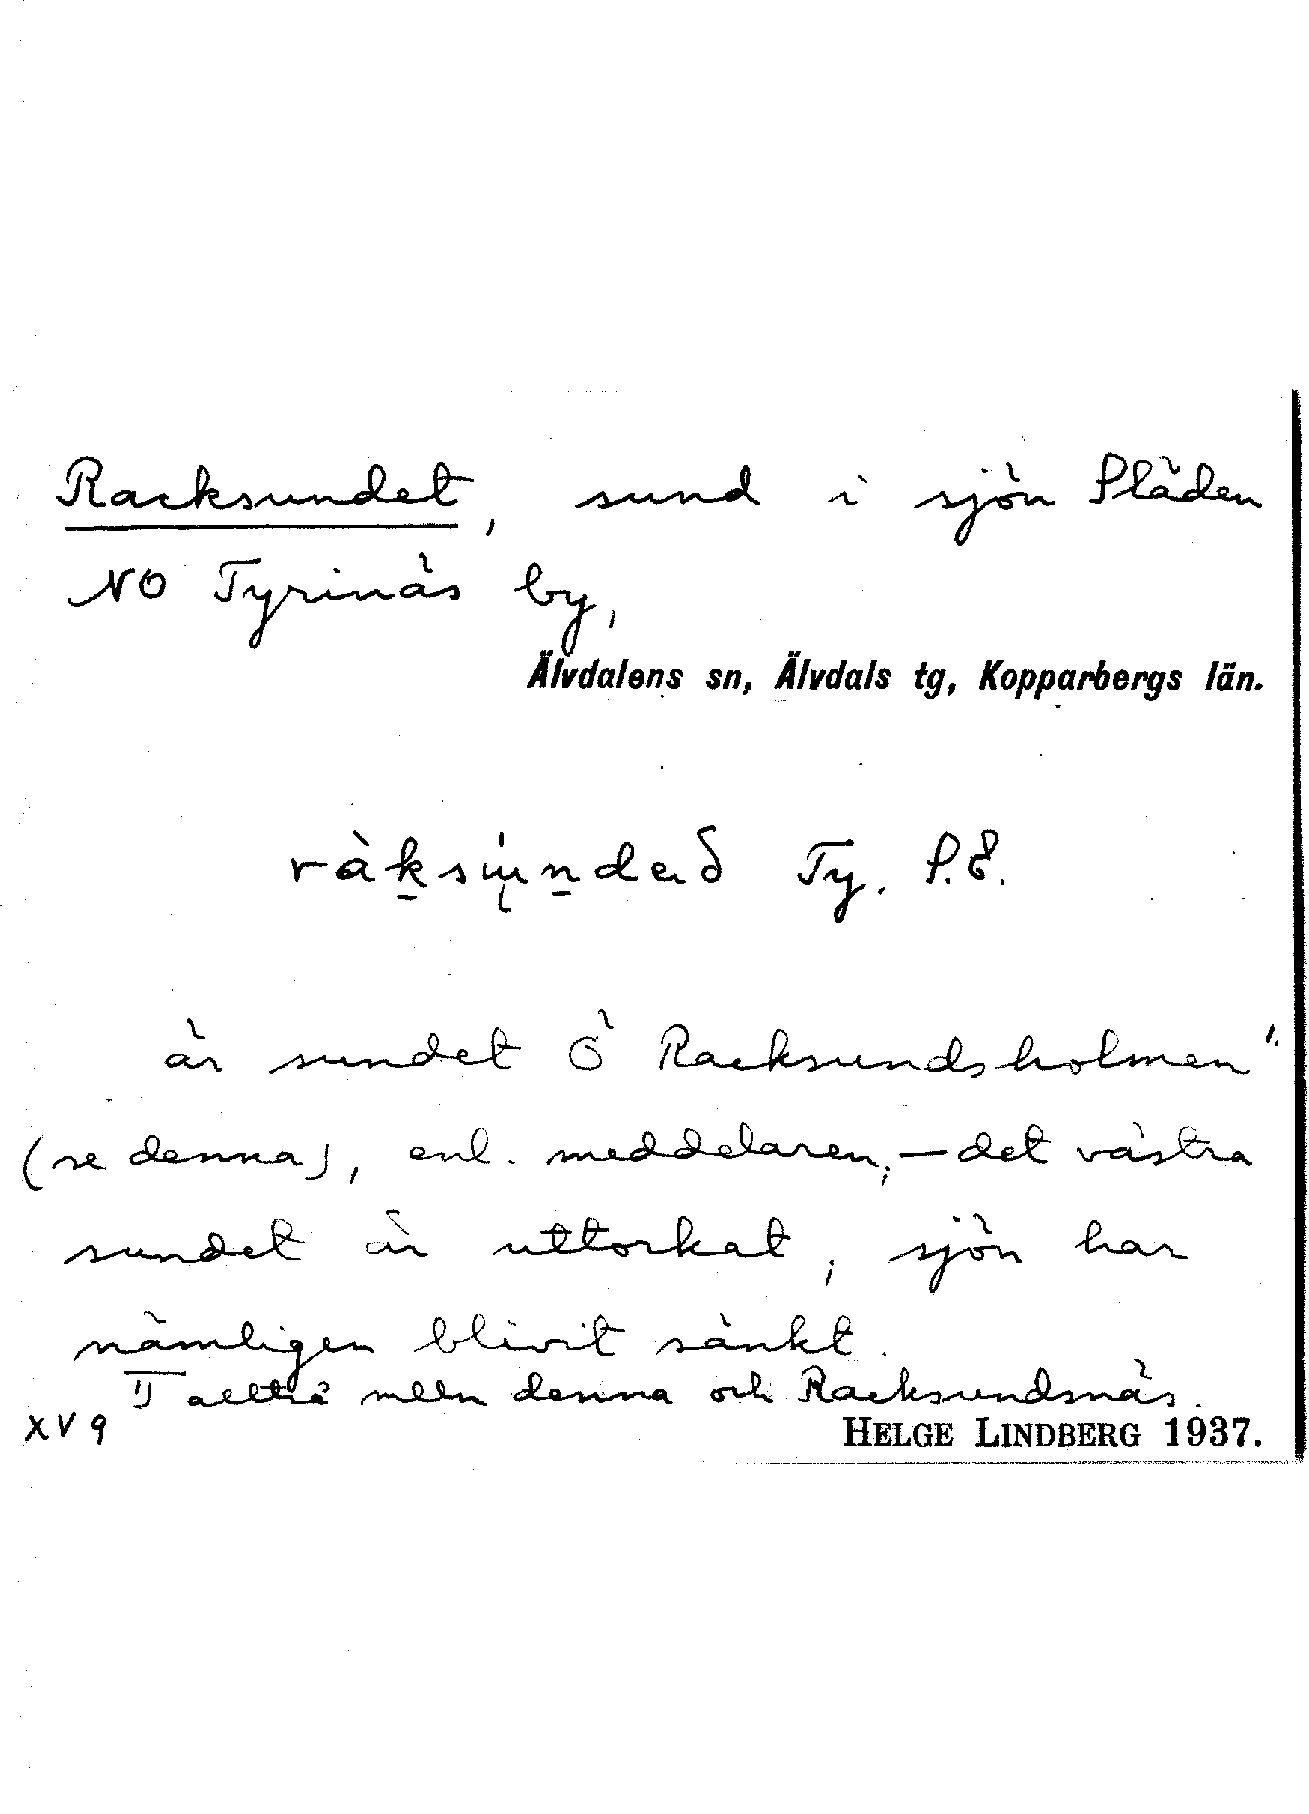 Racksundet, sund i sjön Släden
NO Tyrinäs by,
Älvdalens sn, Älvdals tg, Kopparbergs län.
Ty. S.E.
är sundet Ö Racksundsholmen 1)
(se denna), enl. meddelaren; — det västra
sundet är uttorkat; sjön har
nämligen blivit sänkt.
1) alltså mlln denna och Racksundsnäs.
XV 9
HELGE LINDBERG 1937.